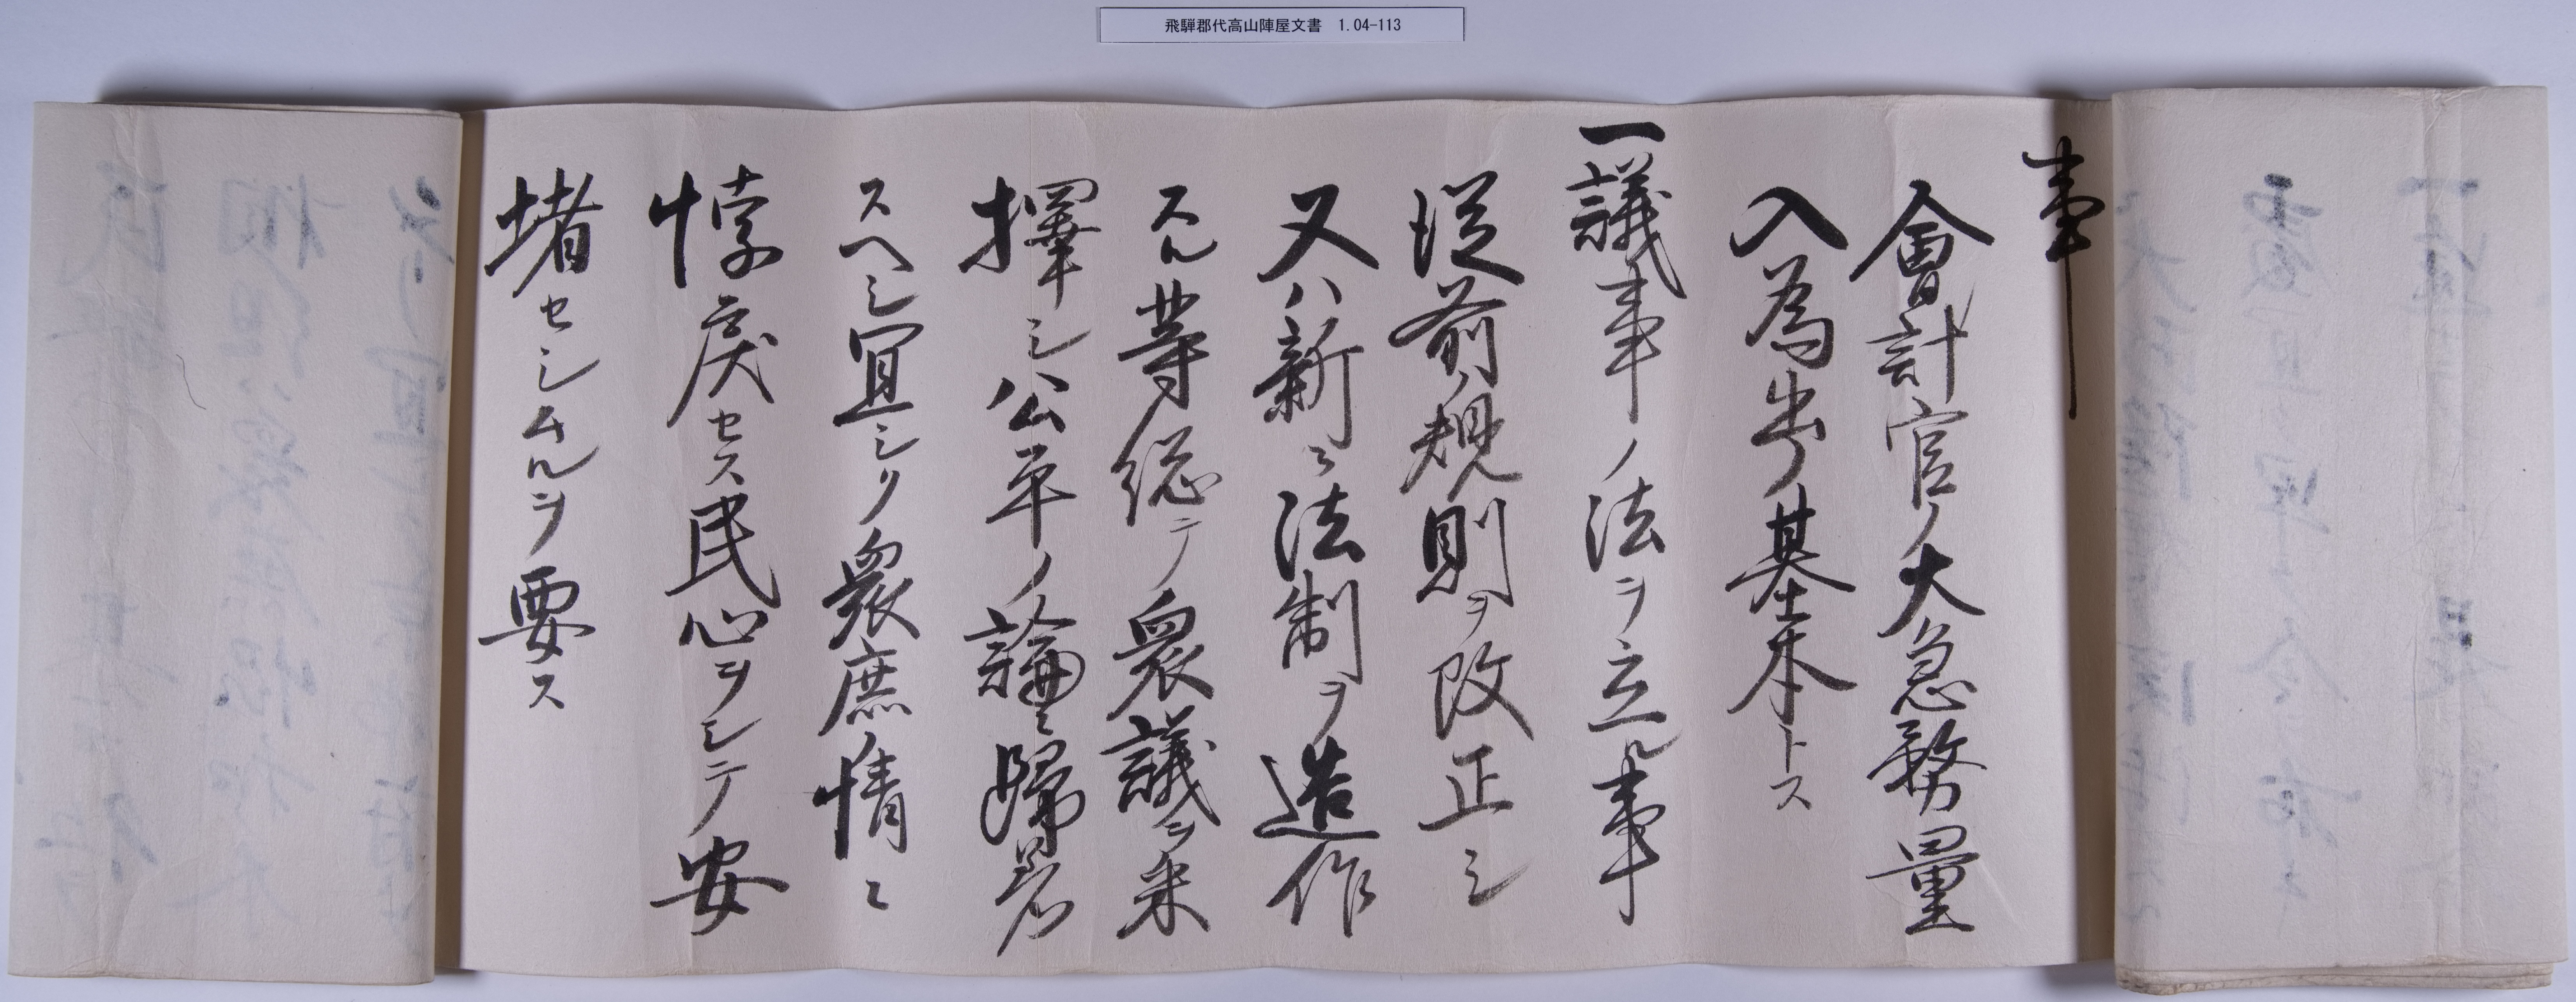 飛騨郡代高山陣屋文書 1.04-113
事
會計官ノ大急務量
入為出ノ基本トス
一議事ノ法ヲ立ル事
従前ノ規則ヲ改正シ
又ハ新ニ法制ヲ造作
スル等総テ衆議ヲ采
擇シ公平ノ論ニ歸着
スヘシ宜シク衆庶ノ情ニ
悖戻セス民心ヲシテ安
堵セシムルヲ要ス